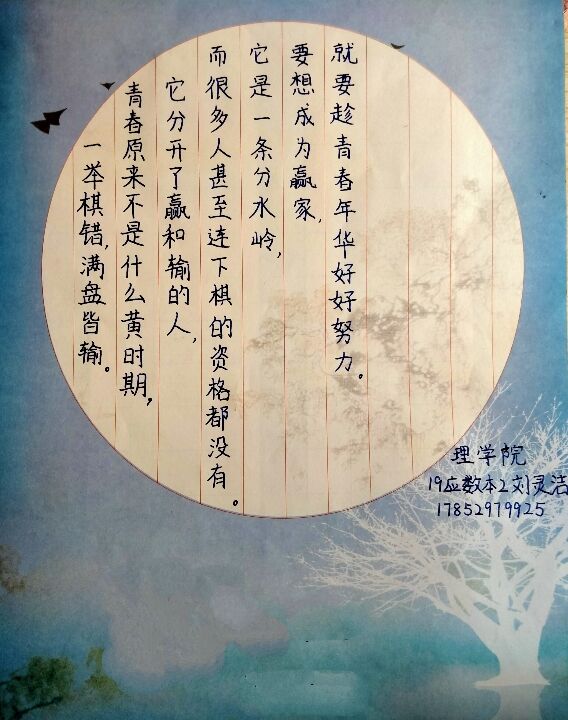 一举棋错,满盘皆输。
青春原来不是什么黄时期,
它分开了赢和输的人,
而很多人甚至连下棋的资格都没有。
它是一条分水岭,
要想成为赢家,
就要趁青春年华好好努力。
理学院
19应数本2刘灵洁
17852979925